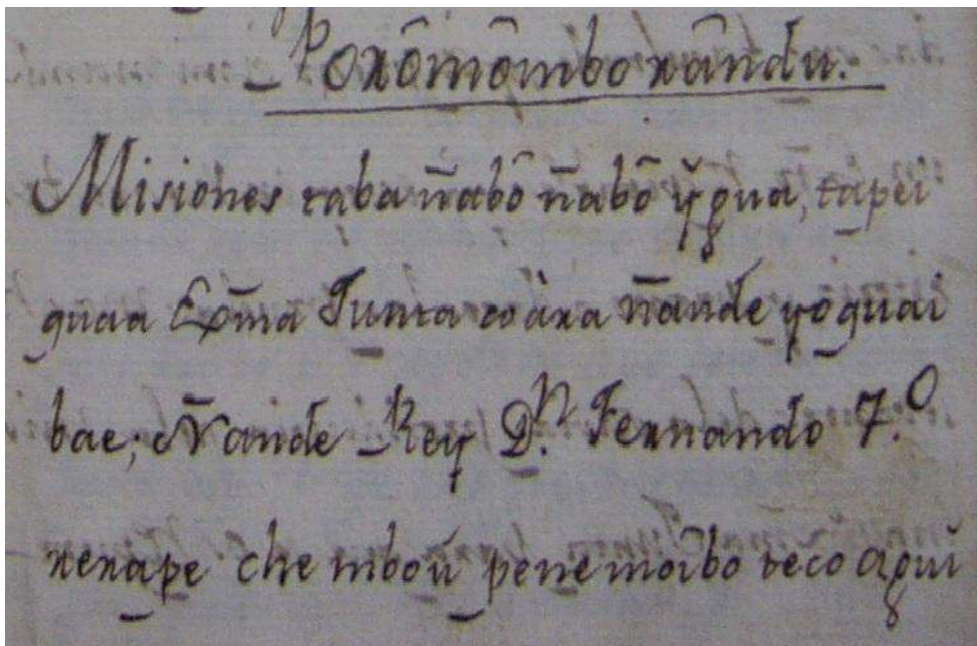 Porômômborându.
Misiones taba ñabô ñabô ỹgua, tapei
guaa Exm̃a Junta co àra ñande yoguai
bae; Ñande Rey D.ⁿ Fernando 7.º
rerape che mboú penemoîbo teco aguĭ